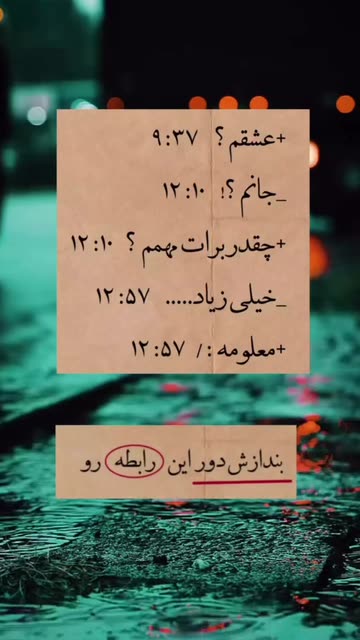 +عشقم ؟ ۹:۳۷
_جانم ؟! ۱۲:۱۰
+چقدر برات مهمم ؟ ۱۲:۱۰
_خیلی زیاد..... ۱۲:۵۷
+معلومه :/ ۱۲:۵۷
بندازش دور این رابطه رو